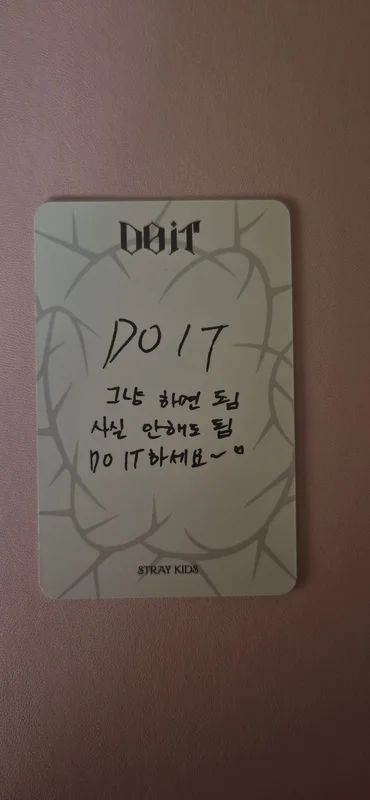 DO iT
DO IT
그냥 하면 됨
사실 안해도 됨
DO IT하세요~°
STRAY KIDS